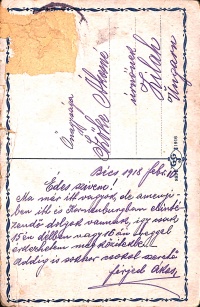 Őnagysága
Szőke Ákosné
úrnőnek
Zilah
Ungarn
Bécs 1918 febr.
Édes szivem!
Ma már itt vagyok, de amennyi-
ben itt is Korneuburgban elinté-
zendő dolgok vannak, igy csak
15én délben vagy 16án reggel
érkezhetem meg
Addig is sokszor csókol szerető
férjed Ákos